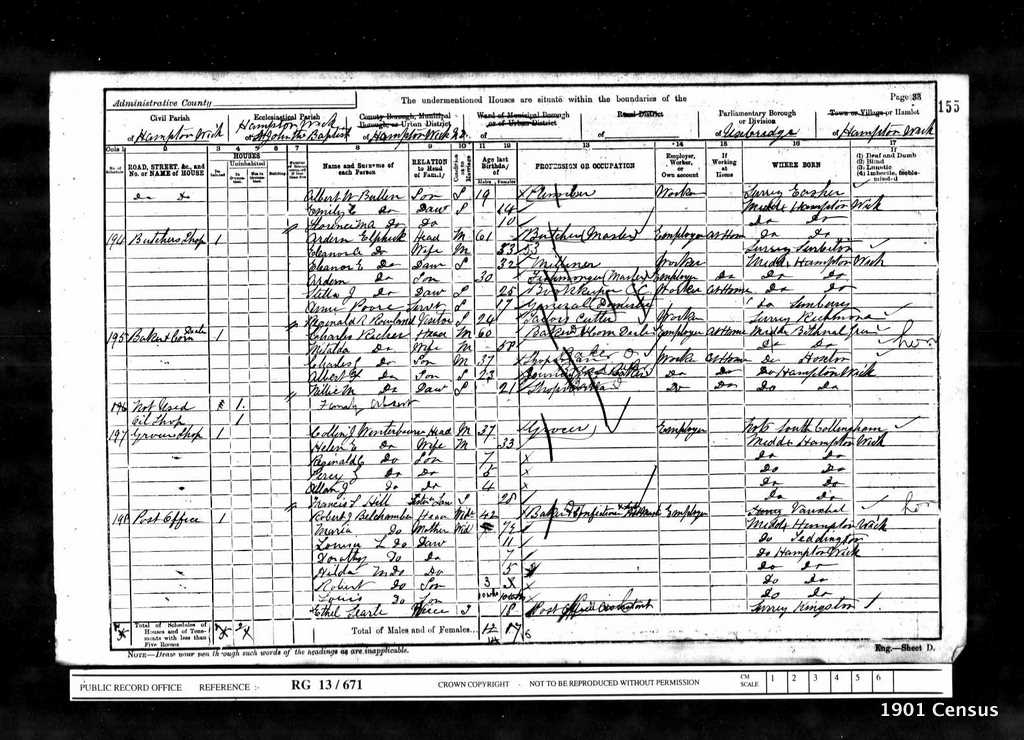 Administrative County
The undermentioned Houses are situate within the boundaries of the
Page 33
155
Civil Parish
of Hampton Wick
Ecclesiastical Parish
Hampton Wick
of St John the Baptist
County Borough, Municipal Borough, or Urban District
of Hampton Wick U.D.
Ward of Municipal Borough or of Urban District
of
Rural District
of
Parliamentary Borough or Division
of Uxbridge
Town or Village or Hamlet
of Hampton Wick
Cols 1 2 3 4 5 6 7 8 9 10 11 12 13 14 15 16 17
ROAD, STREET, &c., and No. or NAME of HOUSE
HOUSES
Uninhabited
Name and Surname of each Person
RELATION to Head of Family
Condition as to Marriage
Age last Birthday of
Males Females
PROFESSION OR OCCUPATION
Employer, Worker, or Own account
If Working at Home
WHERE BORN
If
(1) Deaf and Dumb
(2) Blind
(3) Lunatic
(4) Imbecile, feeble-minded
do Do Albert W Bullen Son S 19 Plumber Worker Surrey Easher
Emily E Do Daur S 14 Midd Hampton Wick
Florence M A Do Do 10 Do Do
194 Butchers Shop 1 Ardern Elphick Head M 61 Butcher (Master) Employer At Home Do Do
Eleanor A Do Wife M 53 Surrey Surbiton
Eleanor E Do Daur S 32 Milliner Worker Midd Hampton Wick
Ardern Do Son 30 Fishmonger (Master) Employer Do Do Do
Stella J Do Daur S 25 Bookkeeper Worker At Home Do Do
Annie Servt S 17 General Domestic Do Sunbury
Reginald R Rowland Visitor S 24 Tailors Cutter Worker Surrey Richmond
195 Baker & Corn Dealer 1 Charles Head M 60 Baker & Corn Dealer Employer At Home Midd Bethnal Green
Matilda Do Wife M 58 Do Do
Charles J Do Son M 37 Baker Worker At Home Do Hoxton
Albert G Do Son S 23 Do Do Do Hampton Wick
Nellie M Do Daur S 21 Do Do Do Do
196 Not Used 1 Family Absent
Oil Shop 1
197 Grocers Shop 1 Collen J Winterbourne Head M 37 Grocer Employer Notts South Collingham
Helen E Do Wife M 33 Midd Hampton Wick
Reginald C Do Son 7 Do Do
Percy J Do Do 5 Do Do
Allan J Do Do 4 Do Do
Francis L Hill Sister in Law S 28 Do Do
198 Post Office 1 Robert J Belchamber Head Wdr 42 Baker & Confectioner Employer Surrey Vauxhall
Maria Do Mother Wid 74 Midd Hampton Wick
Louisa L Do Daur 11 Do Teddington
Dorothy Do Do 7 Do Hampton Wick
Hilda M Do Do 5 Do Do
Robert Do Son 3 Do Do
Louis Do Son 10 mths Do Do
Ethel Searle Niece S 18 Post Office Assistant Surrey Kingston
Total of Schedules of Houses and of Tenements with less than Five Rooms
Total of Males and of Females... 17
NOTE—Draw your pen through such words of the headings as are inapplicable.
Eng.—Sheet D.
PUBLIC RECORD OFFICE REFERENCE :- RG 13/671 CROWN COPYRIGHT - NOT TO BE REPRODUCED WITHOUT PERMISSION CM SCALE 1 2 3 4 5 6
1901 Census